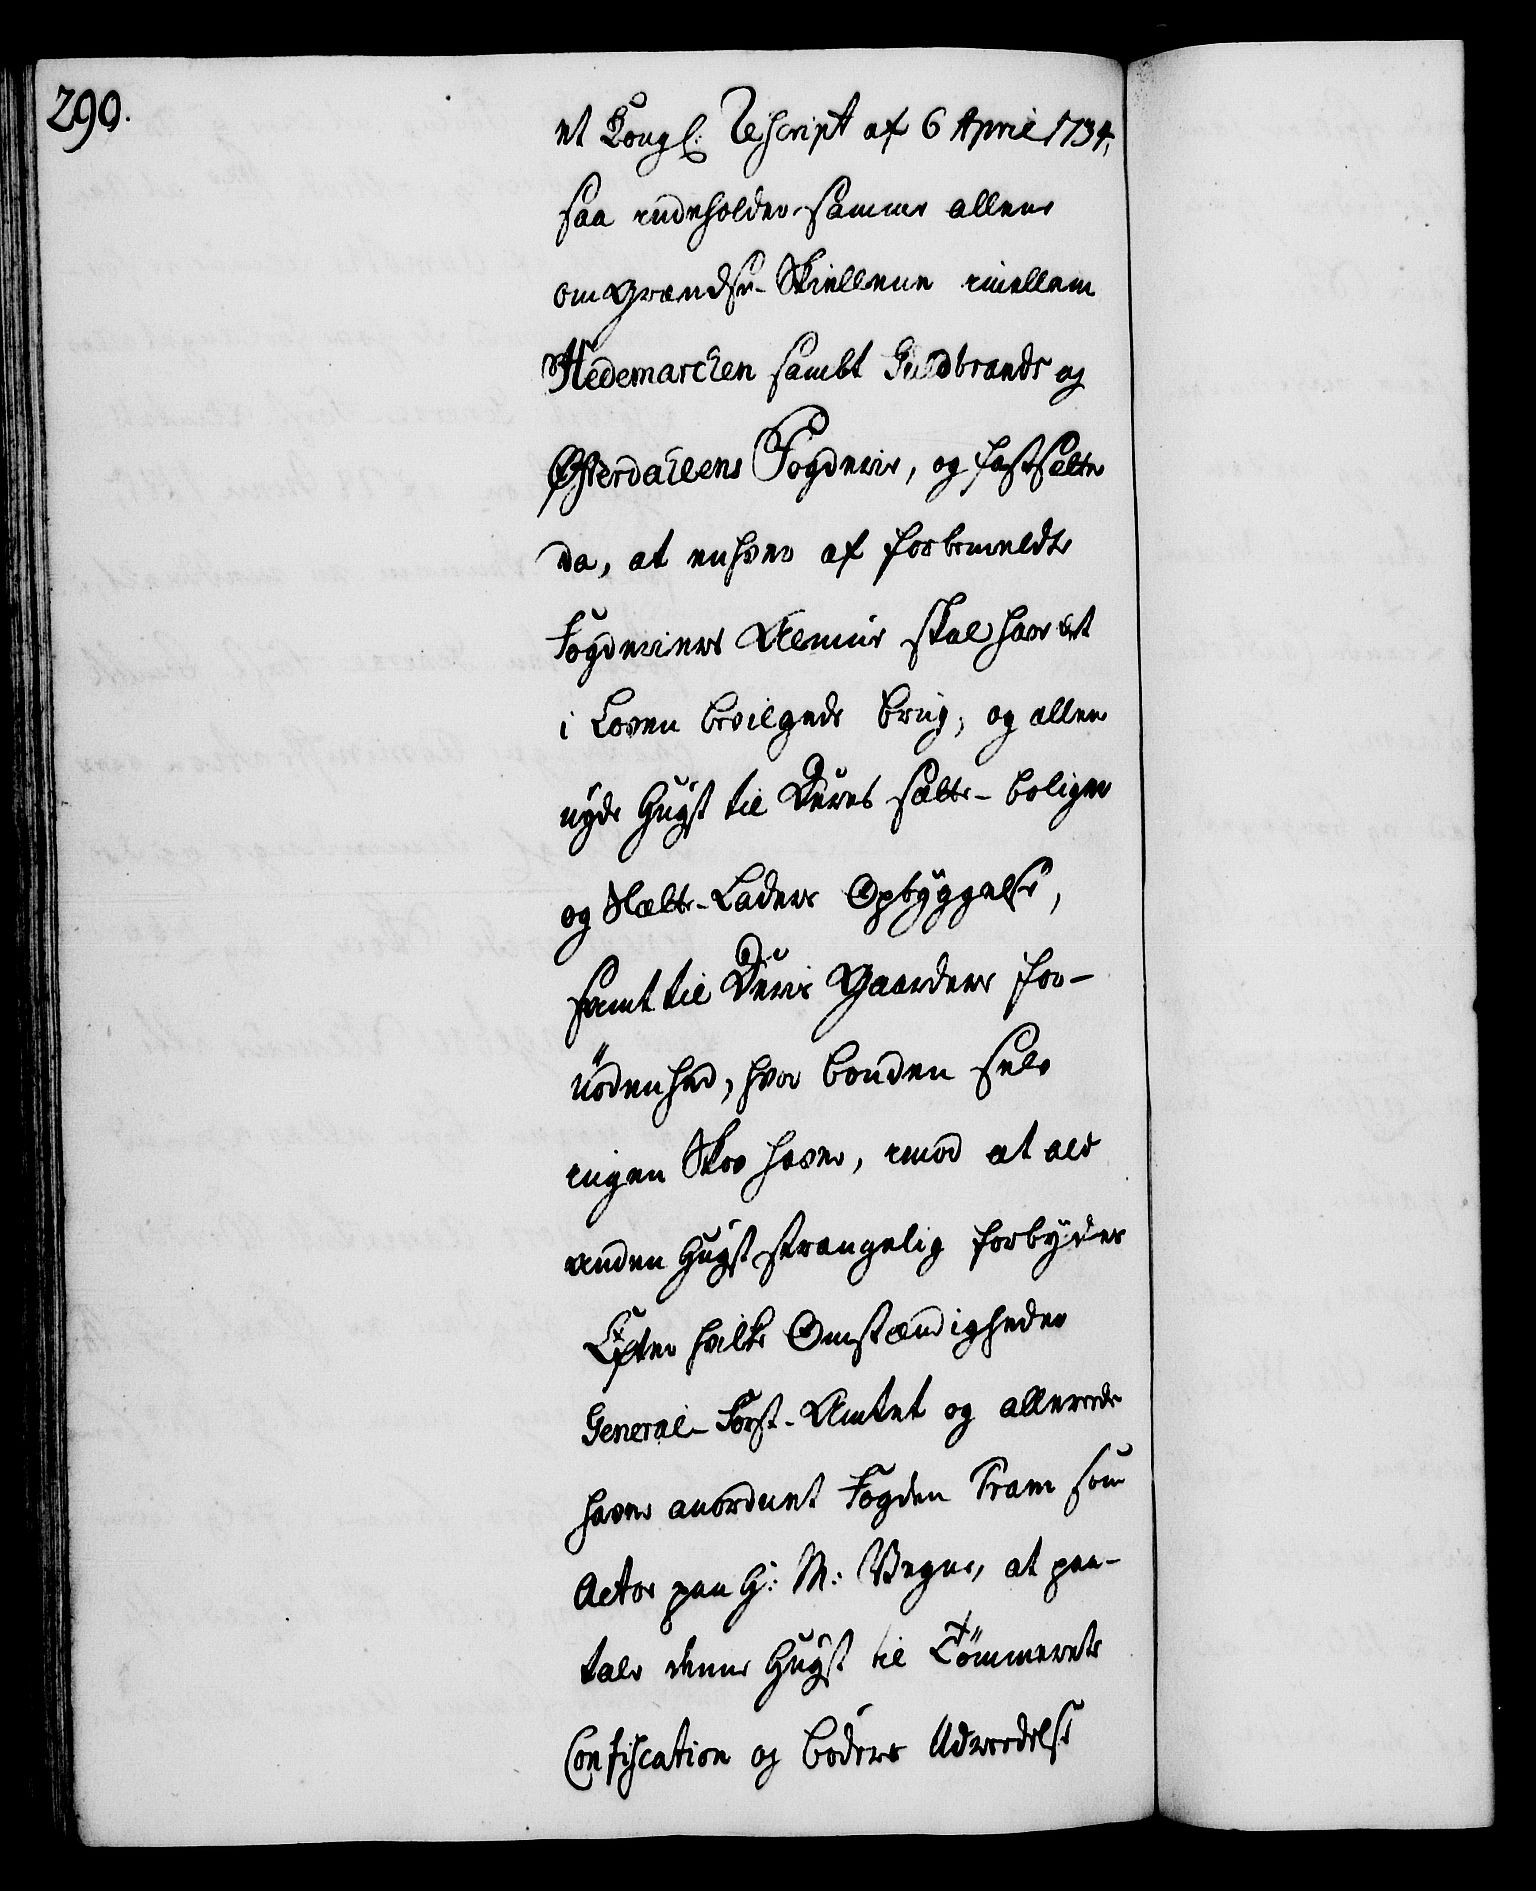 290.
et Kongl: Rescript af 6 April 1734,
saa indeholder samme allene
om Grændse-Skiellene imellem
Hedemarchen sambt Guldbrands og
Østerdahlens Fogderie, og fastsætter
da, at enhver af forbemeldte
Fogderiers Almue skal have det
i Loven bevilgede brug, og allene
nyde Hugst til Deres Sætte-boliger
og Slætte-Laders Opbyggelse,
samt til Deris Gaarders For-
nödenhed, hvor bonden selv
ingen Skov haver, imod at ald
anden Hugst strængelig forbydes
Efter hvilke Omstændigheder
General-Forst-Amtet og allerede
haver anordnet Fogden Pram som
Actor paa H: M: Vegne, at paa-
tale denne Hugst til Tömmerets
Confiscation og böders Udreedelse